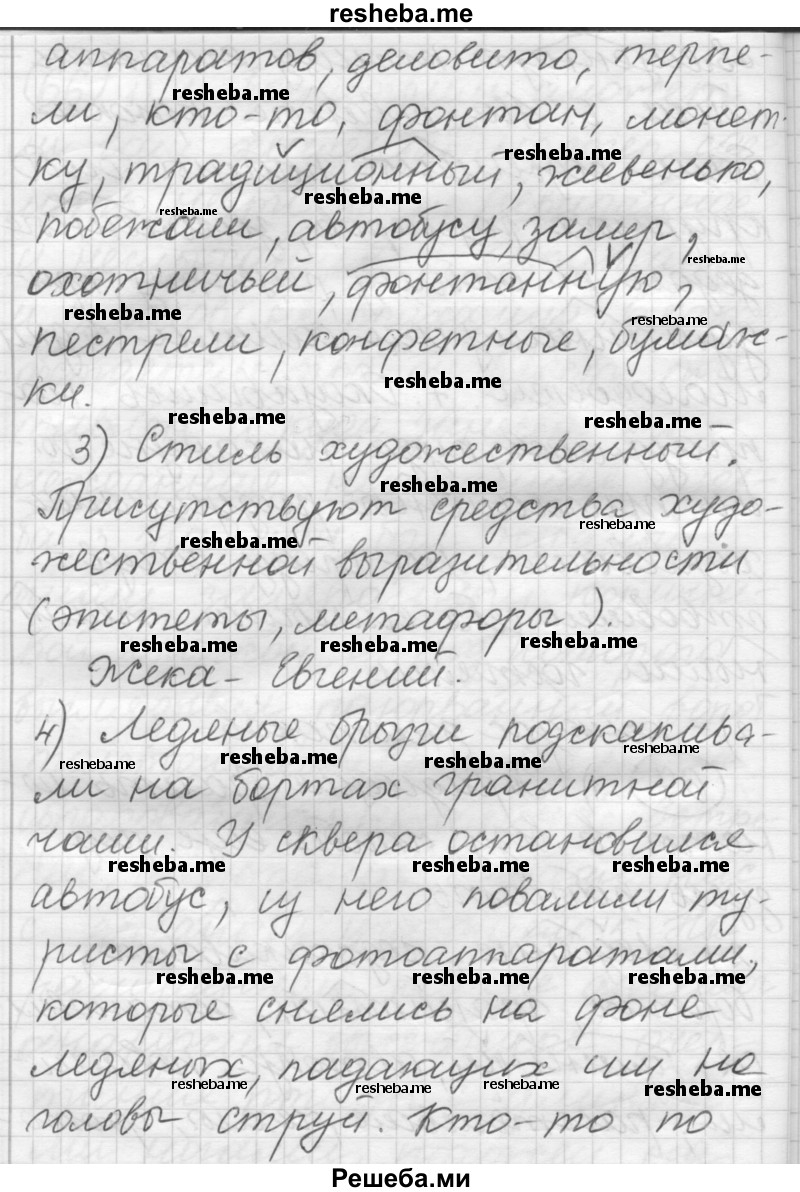 resheba.me
аппаратов, деловито, терпе-
ли, кто-то, фонтан, монет-
ку, традиционный, живенько,
побежали, автобусу, замер,
охотничьей, фонтанную,
пестрели, конфетные, бумаж-
ки.
3) Стиль художественный.
Присутствуют средства худо-
жественной выразительности
(эпитеты, метафоры).
Жека - Евгений.
4) Ледяные брызги подскакива-
ли на бортах гранитной
чаши. У сквера остановился
автобус, из него повалили ту-
ристы с фотоаппаратами,
которые снялись на фоне
ледяных, падающих им на
головы струй. Кто-то по
Решеба.ми